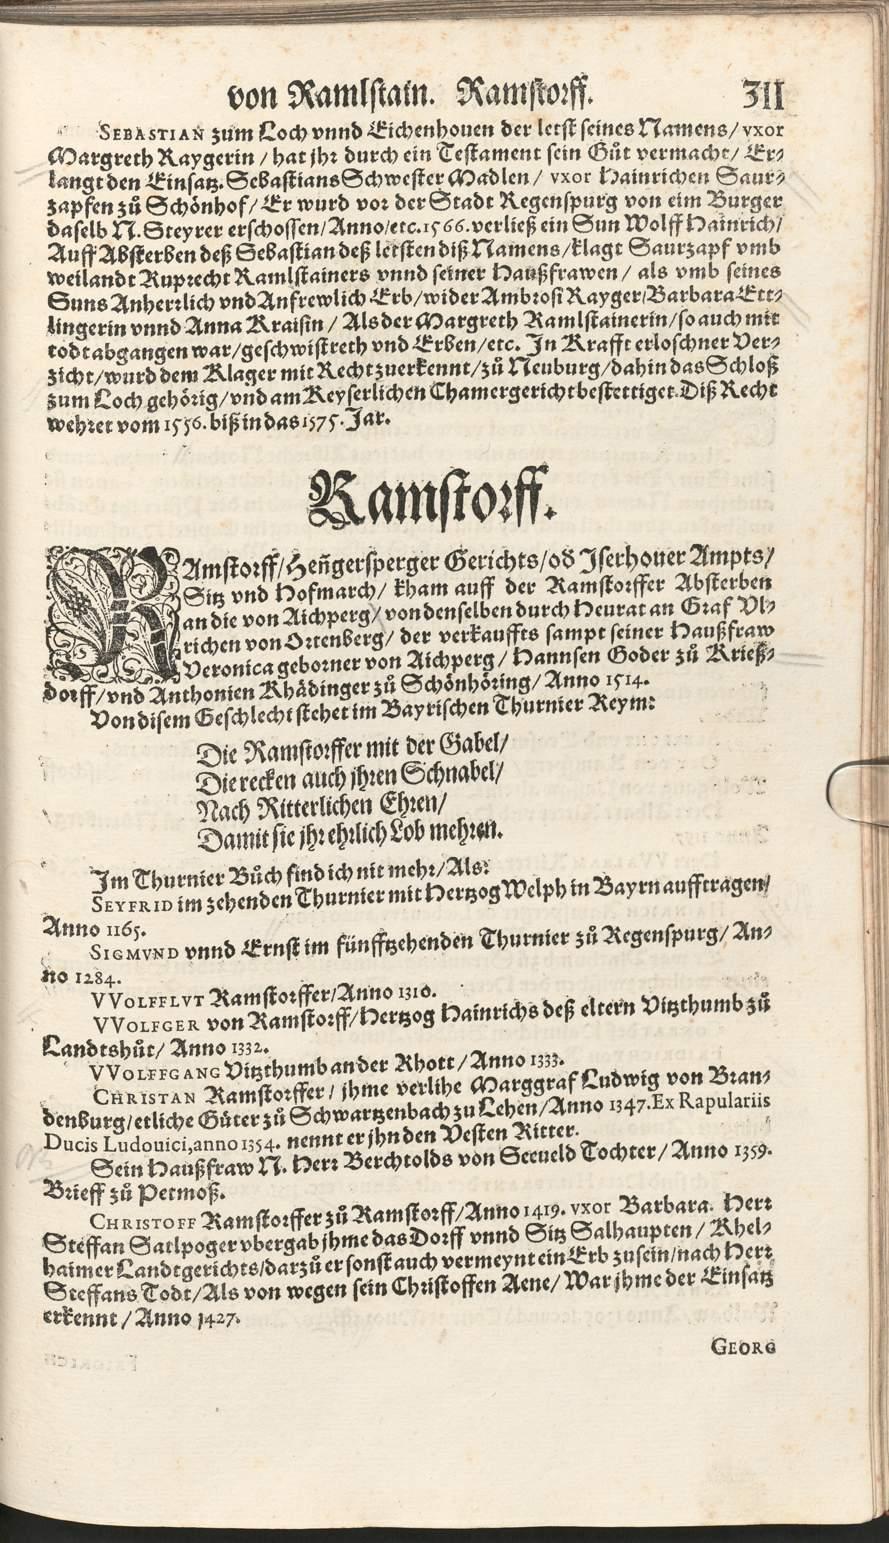 von Ramlstain. Ramstorff. 311
SEBASTIAN zum Loch vnnd Eichenhouen der letst seines Namens/ vxor
Margreth Raygerin / hat jhr durch ein Testament sein Gůt vermacht/ Er⸗
langt den Einsatz. Sebastians Schwester Madlen / vxor Hainrichen Saur⸗
zapfen zů Schönhof/ Er wurd vor der Stadt Regenspurg von eim Burger
daselb N. Steyrer erschossen/Anno/etc.1566.verließ ein Sun Wolff Hainrich/
Auff Absterben deß Sebastian deß letsten diß Namens/klagt Saurzapf vmb
weilandt Ruprecht Ramlstainers vnnd seiner Haußfrawen / als vmb seines
Suns Anherrlich vnd Anfrewlich Erb/wider Ambrosi Rayger/Barbara Ett⸗
lingerin vnnd Anna Kraisin / Als der Margreth Ramlstainerin/so auch mit
todt abgangen war/geschwistreth vnd Erben/etc. In Krafft erloschner Ver⸗
zicht/wurd dem Klager mit Recht zuerkennt/zů Neuburg/dahin das Schloß
zum Loch gehörig/vnd am Keyserlichen Chamergericht bestettiget. Diß Recht
wehret vom 1556. biß in das 1575. Jar.
Ramstorff.
RAmstorff/Heñgersperger Gerichts/od Iserhouer Ampts/
Sitz vnd Hofmarch/ kham auff der Ramstorffer Absterben
an die von Aichperg/ von denselben durch Heurat an Graf Vl⸗
richen von Ortenberg/ der verkauffts sampt seiner Haußfraw
Veronica geborner von Aichperg / Hannsen Goder zů Krieß⸗
dorff/vnd Anthonien Khädinger zů Schönhöring/ Anno 1514.
Von disem Geschlecht stehet im Bayrischen Thurnier Reym:
Die Ramstorffer mit der Gabel/
Die recken auch jhren Schnabel/
Nach Ritterlichen Ehren/
Damit sie jhr ehrlich Lob mehren.
Im Thurnier Bůch find ich nit mehr/Als:
SEYFRID im zehenden Thurnier mit Hertzog Welph in Bayrn aufftragen/
Anno 1165.
SIGMVND vnnd Ernst im fünfftzehenden Thurnier zů Regenspurg/ An⸗
no 1284.
VVOLFFLVT Ramstorffer/Anno 1310.
VVOLFGER von Ramstorff/Hertzog Hainrichs deß eltern Vitzthumb zů
Landtshůt/ Anno 1332.
VVOLFFGANG Vitzthumb an der Rhott/Anno 1333.
CHRISTAN Ramstorffer / jhme verlihe Marggraf Ludwig von Bran⸗
denburg/etliche Gůter zů Schwartzenbach zu Lehen/Anno 1347. Ex Rapulariis
Ducis Ludouici, anno 1354. nennt er jhn den Vesten Ritter.
Sein Haußfraw N. Herr Berchtolds von Seeueld Tochter/ Anno 1359.
Brieff zů Petmoß.
CHRISTOFF Ramstorffer zů Ramstorff/Anno 1419. vxor Barbara. Herr
Steffan Satlpoger vbergab jhme das Dorff vnnd Sitz Salhaupten / Khel⸗
haimer Landtgerichts/darzů er sonst auch vermeynt ein Erb zu sein/nach Herr
Steffans Todt/Als von wegen sein Christoffen Aene/War jhme der Einsatz
erkennt / Anno 1427.
GEORG